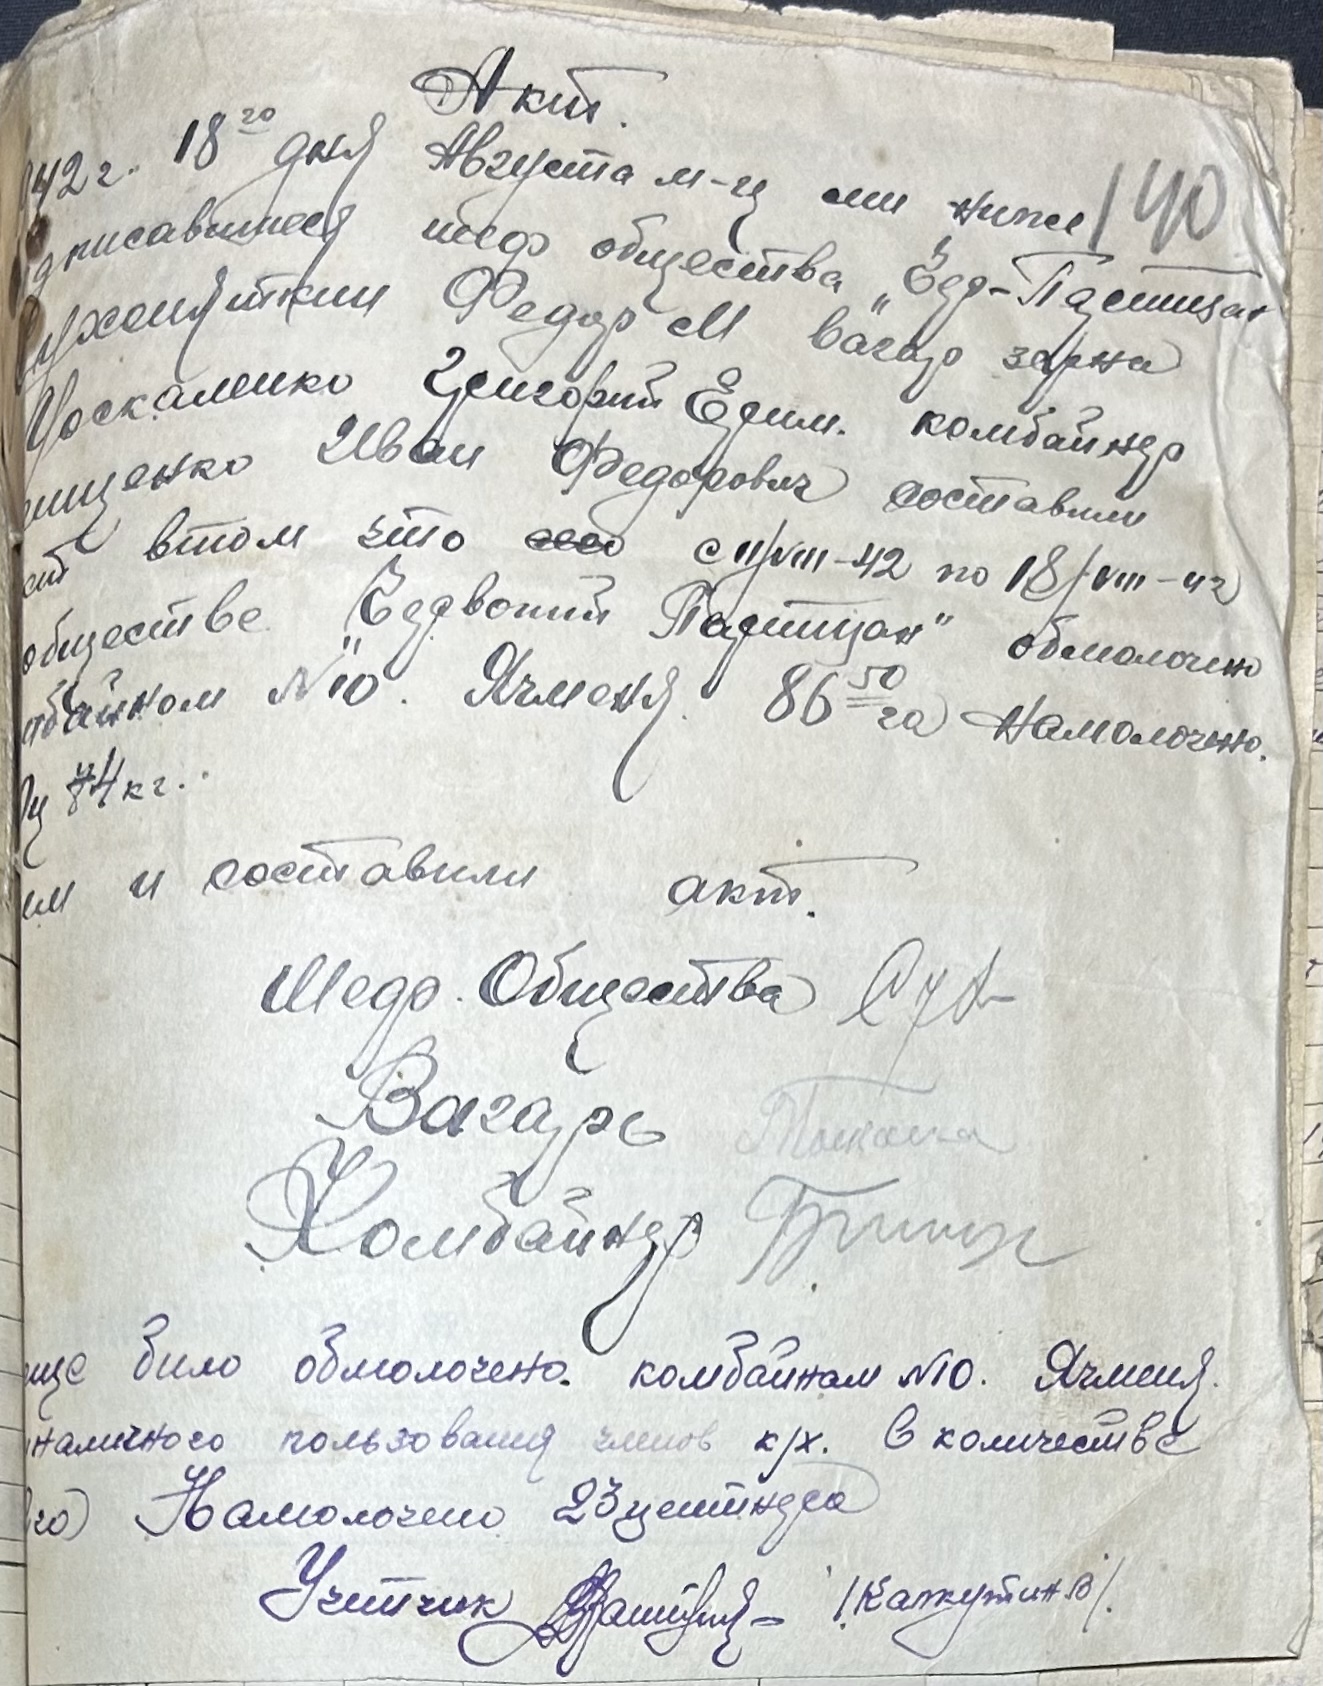 Акт.
42 г. 18го дня Августа м-ц ми ниже 140
дписавшиеся шеф общества "Едр-Падшизан
Федор М вагар зерна
Москаленко Григорий Ефим. комбайнер
ищенко Иван Федорович составили
акт втом что с 11/VIII-42 по 18/VIII-42
обществе "Падшизан" обмолочено
мбайном №10. Ячменя. 86 50 га намолочено.
ц 74 кг.
им и составили акт.
Шеф. Общества Сух
Вагарь
Комбайнер
еще било обмолочено. комбайнам №10. Ячменя.
наличного пользования членов к/х. в количестве
га) Намолочено 23 центнера
Учетчик